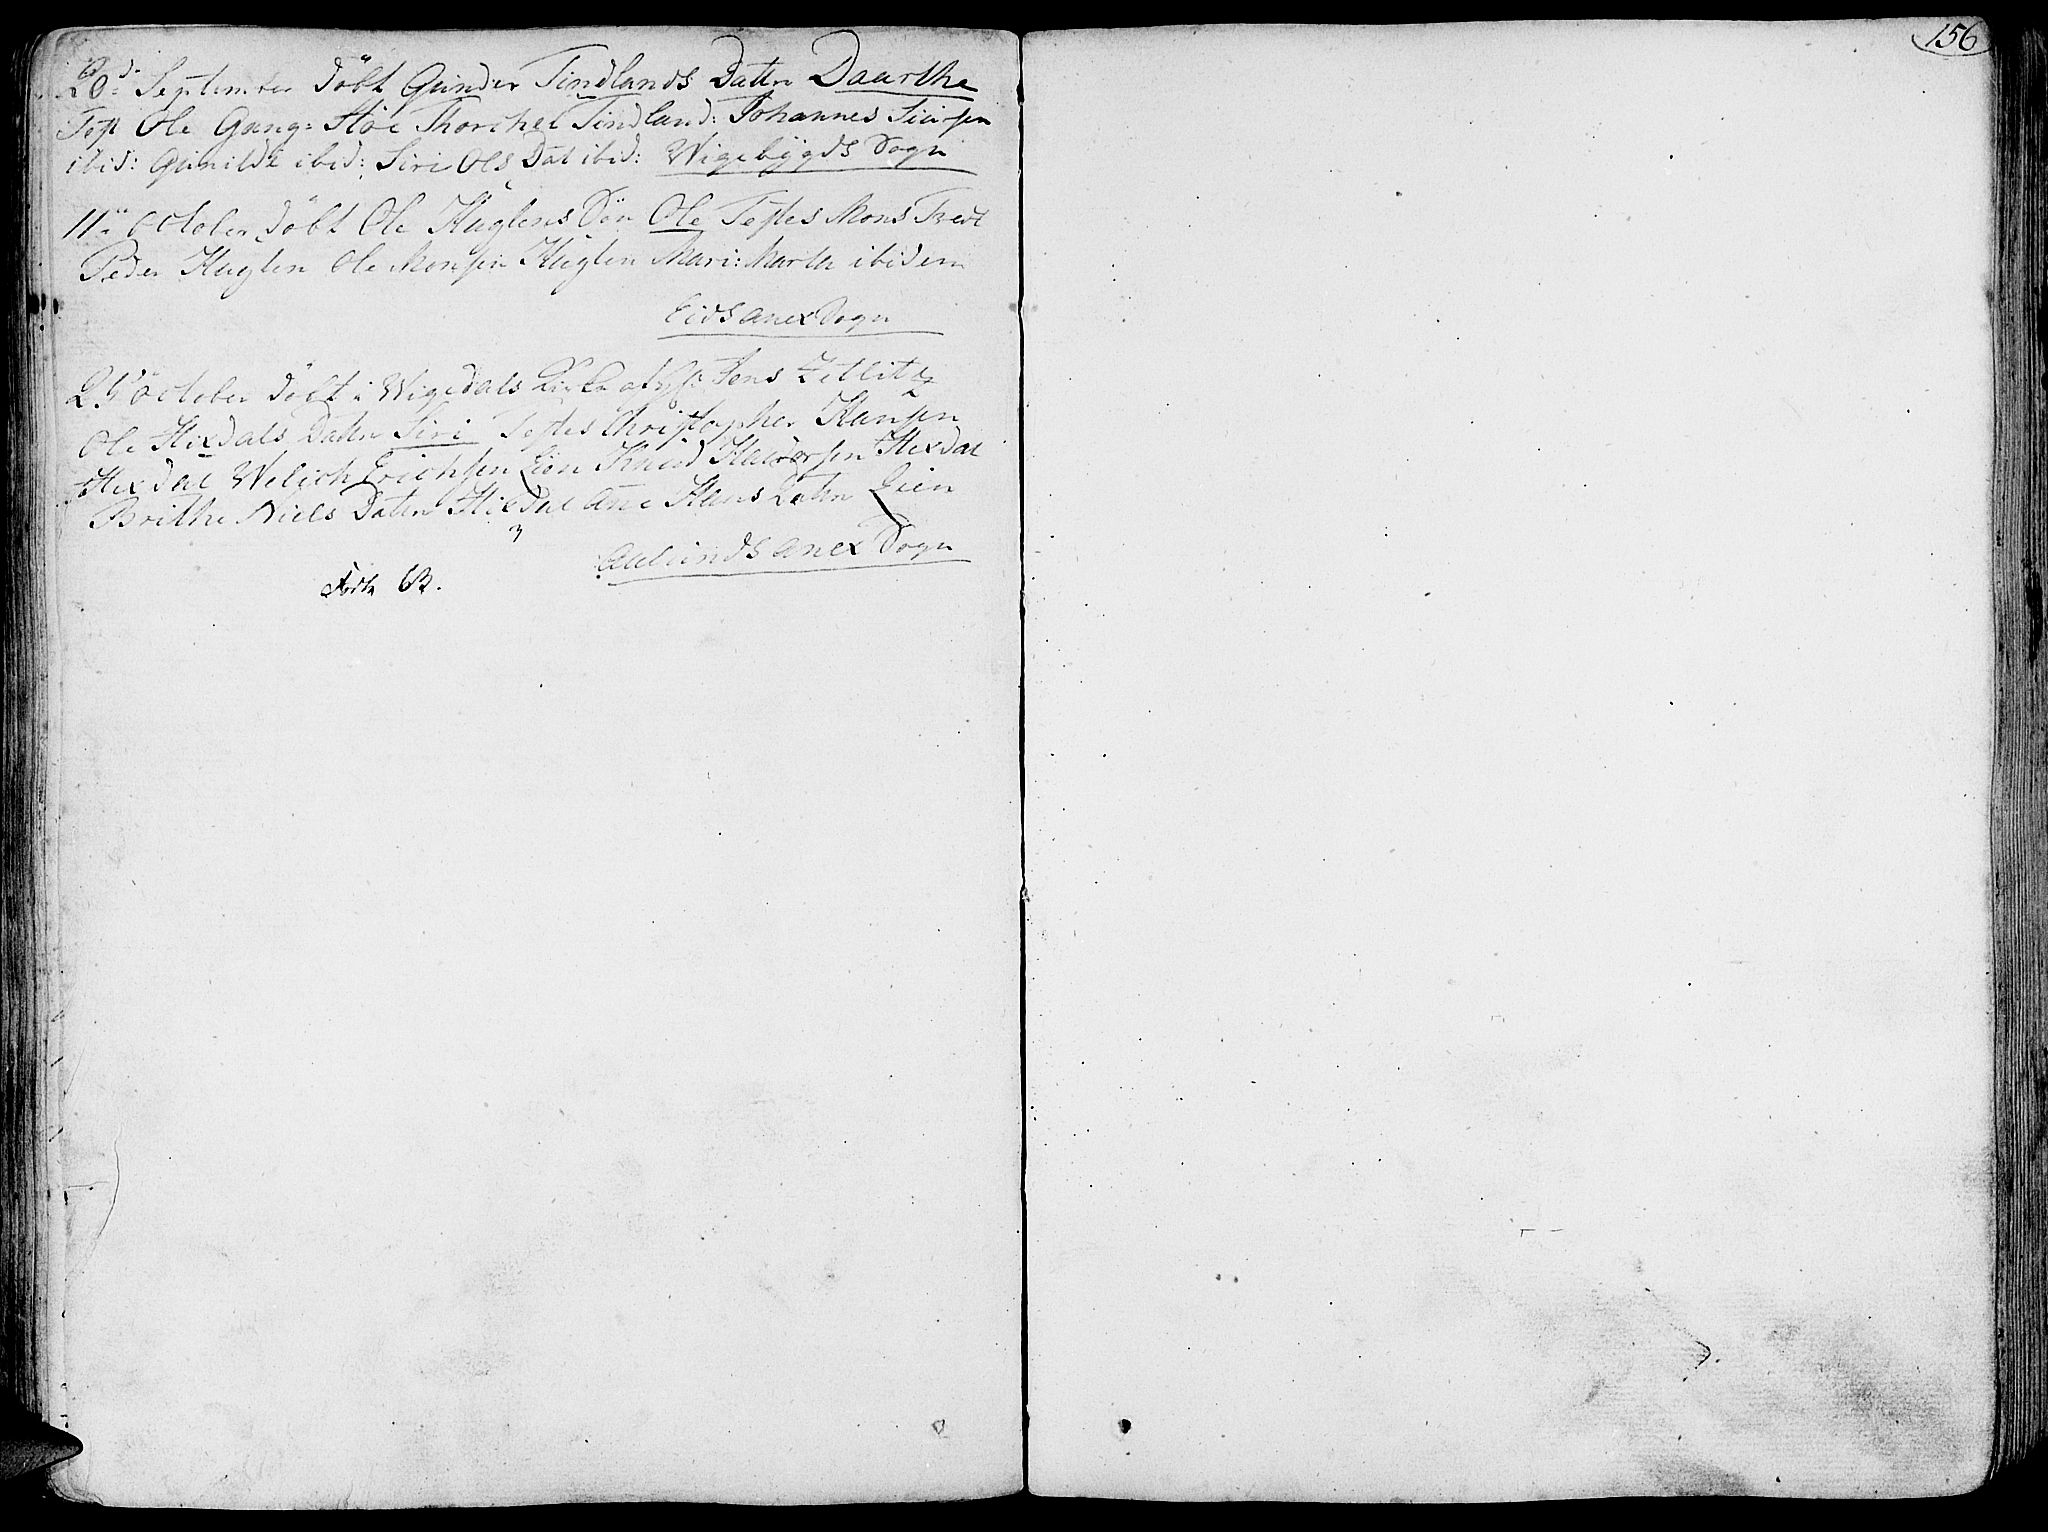 156
20d September döbt Gunder Tindlands Datter Daarthe
Test Ole Gung: Støe Thorchel Tindland: Johannes Siursen
ibid: Gunilde ibid: Siri Ols Dat ibid: Wigebÿgds Sogn
11te October döbt Ole Huglens Sön Ole Testes Mons Tvedt
Peder Huglen Ole Monsen Huglen Mari: Marta ibidem
Eids anex Sogn
October döbt i Wigedals Kirke af Jens Zetlitz
Ole Hixdals Datter Siri Testes Christopher Hansen
Hixdal Welich Erichsen Lien Knud Halvorsen Hixdal
Brithe Niels Datter Hixdal Ane Hans Datter Lien
Aalunds anex Sogn